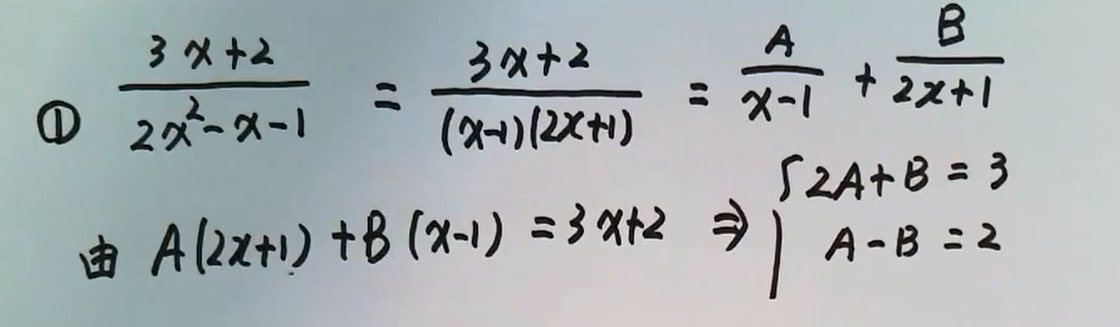 ① (3x+2)/(2x²-x-1) = (3x+2)/((x-1)(2x+1)) = A/(x-1) + B/(2x+1)
由 A(2x+1)+B(x-1)=3x+2 ⇒ { 2A+B=3
A-B=2